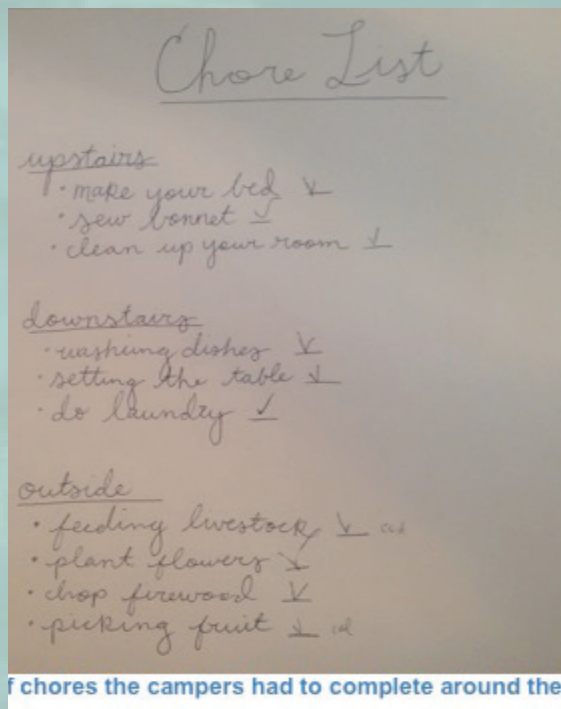 Chore List
upstairs
· make your bed ✓
· sew bonnet ✓
· clean up your room ✓
downstairs
· washing dishes ✓
· setting the table ✓
· do laundry ✓
outside
· feeding livestock ✓
· plant flowers ✓
· chop firewood ✓
· picking fruit ✓
f chores the campers had to complete around the